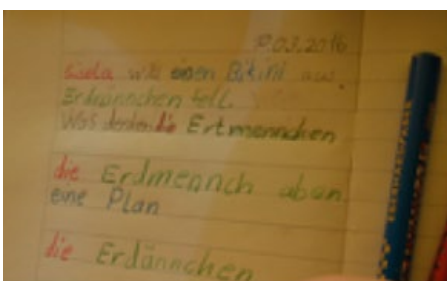 9.03.2016
Gisela will einen Bikini aus
Erdmännchen fell.
Was denken die Ertmennchen
die Erdmennch aben
eine Plan
die Erdännchen